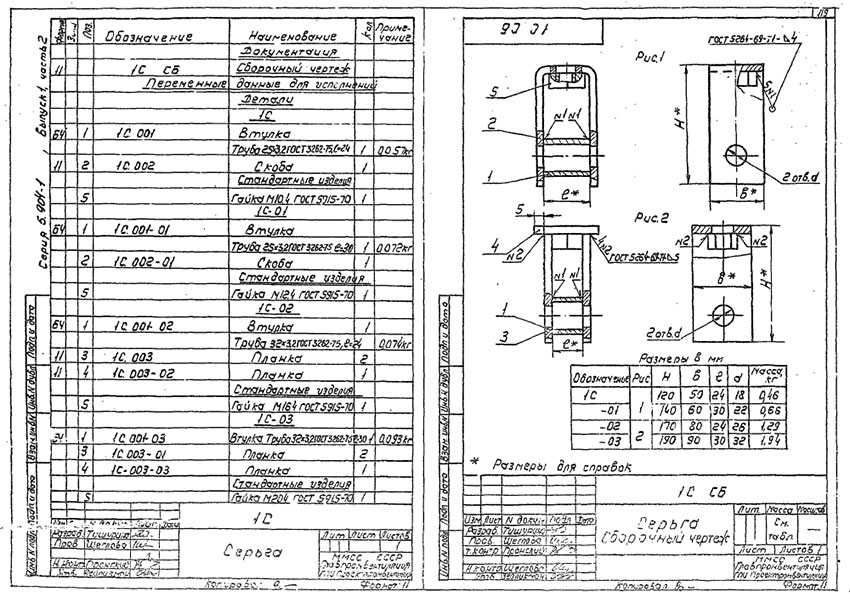 Серия 5.904-1, Выпуск 1, часть 2
Обозначение Наименование Кол Приме-
чание
Документация
11 1С СБ Сборочный чертеж
Переменные данные для исполнений
Детали
1С
БЧ 1 1С 001 Втулка
Труба 25×3,2 ГОСТ 3262-75, ℓ=24 1 0,057кг
11 2 1С 002 Скоба 1
Стандартные изделия
5 Гайка М10.4 ГОСТ 5915-70 1
1С-01
БЧ 1 1С 001-01 Втулка
Труба 25×3,2 ГОСТ 3262-75 ℓ=30 1 0,072кг
2 1С 002-01 Скоба 1
Стандартные изделия
5 Гайка М12.4 ГОСТ 5915-70 1
1С-02
БЧ 1 1С 001-02 Втулка 1
Труба 32×3,2 ГОСТ 3262-75, ℓ=24 0,074кг
11 3 1С 003 Планка 2
11 4 1С 003-02 Планка 1
Стандартные изделия
5 Гайка М16.4 ГОСТ 5915-70 1
1С-03
БЧ 1 1С 001-03 Втулка Труба 32×3,2 ГОСТ 3262-75 ℓ=30 1 0,093кг
3 1С 003-01 Планка 2
4 1С-003-03 Планка 1
Стандартные изделия
5 Гайка М20.4 ГОСТ 5915-70 1
1С
Серьга
Лит Лист Листов
ММСС СССР
Главпромвентиляция
ГПИ Проектпромвентиляция
Разраб. Тишурина
Пров Щеглова
Н.контр Пронский
Копировал
Формат 11
Инв.N подл. Подп и дата Взам.инв.N Инв.N дубл. Подп и дата
1С СБ
119
Рис.1
ГОСТ 5264-69-Т1-⊿4
5
2
1
N1 N1
ℓ*
H*
5N1
2 отв.d
В*
Рис.2
5
4
N2
4N2
ГОСТ 5264-69-Н1-⊿5
N1 N1
1
3
ℓ*
N2 N2
В*
H*
2 отв.d
Размеры в мм
Обозначение Рис H В ℓ d Масса
кг
1С 1 120 50 24 18 0,46
-01 140 60 30 22 0,66
-02 2 170 80 24 26 1,29
-03 190 90 30 32 1,94
* Размеры для справок
1С СБ
Серьга
Сборочный чертеж
Лит Масса Масштаб
См.
табл.
—
Лист Листов 1
ММСС СССР
Главпромвентиляция
ГПИ Проектпромвентиляция
Изм Лист N докум Подп Дата
Разраб. Тишурина
Пров. Щеглова
Т.контр Пронский
Н.контр Щеглова
Копировал
Формат 11